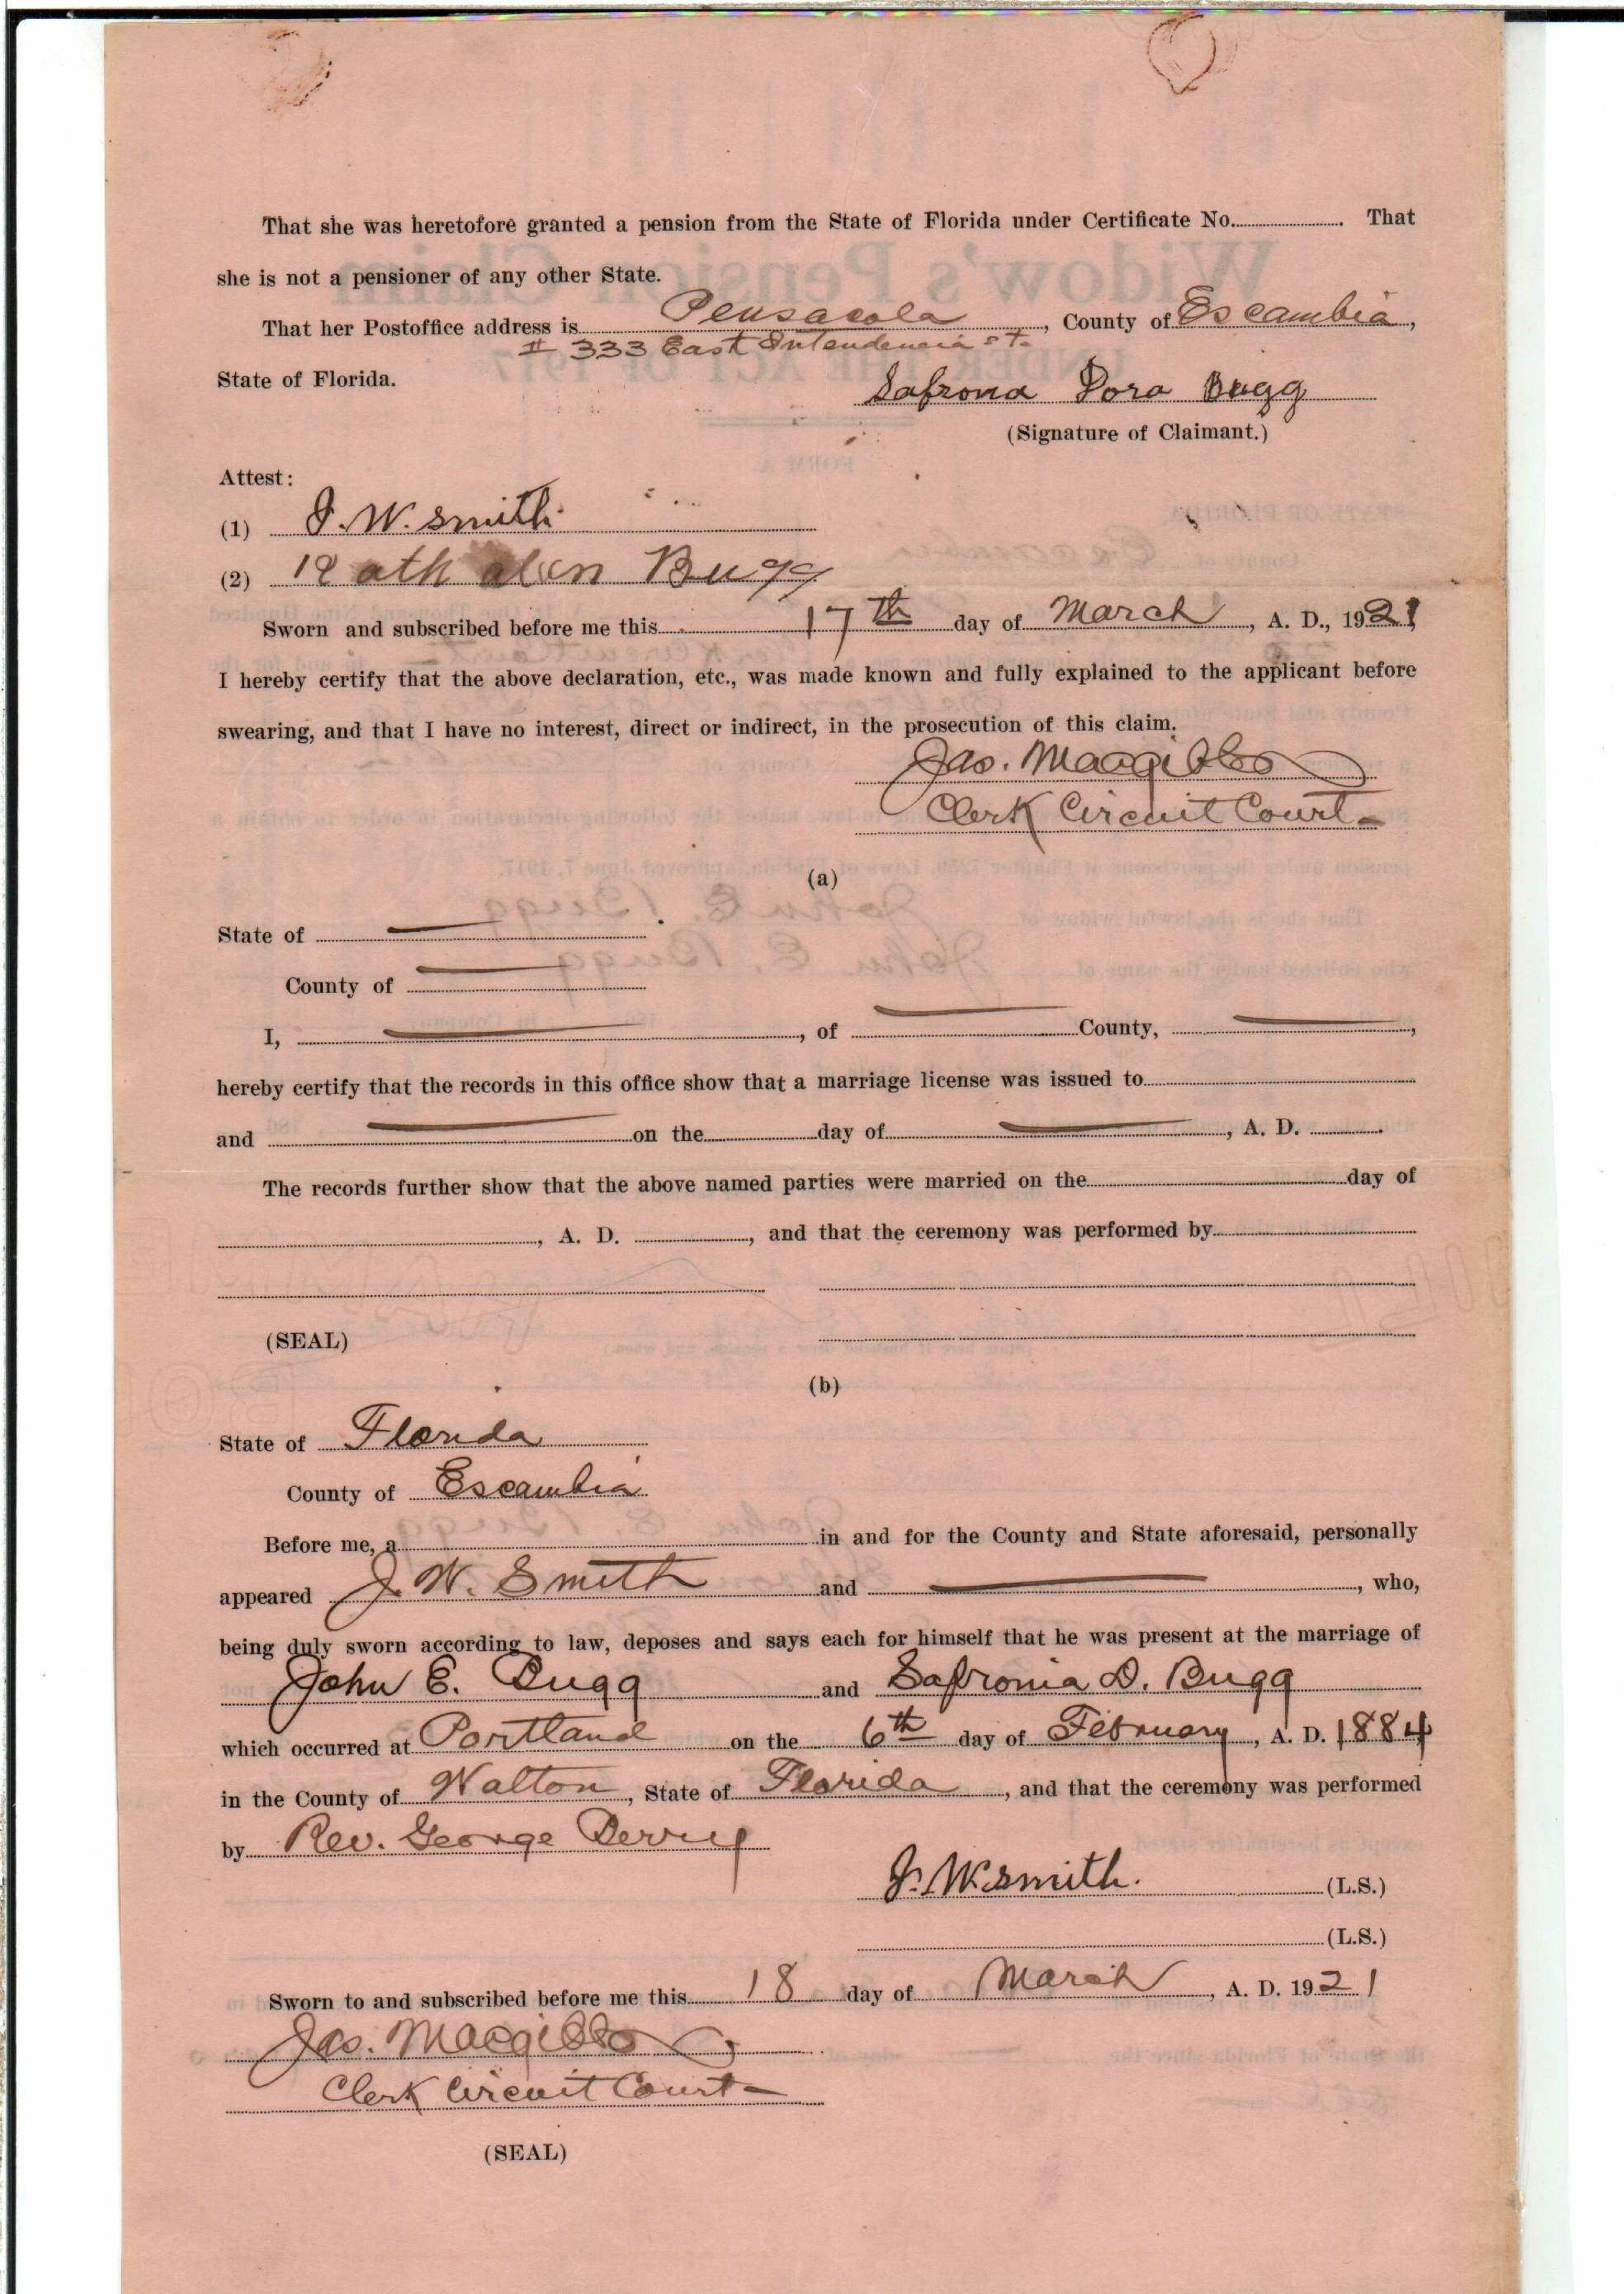 That she was heretofore granted a pension from the State of Florida under Certificate No. . That
she is not a pensioner of any other State.
That her Postoffice address is Pensacola, County of Escambia,
# 333 East Intendencia st.
State of Florida.
Safrona Dora Bugg
(Signature of Claimant.)
Attest:
(1) J. W. Smith
(2) Bugg
Sworn and subscribed before me this 17th day of March, A. D., 1921
I hereby certify that the above declaration, etc., was made known and fully explained to the applicant before
swearing, and that I have no interest, direct or indirect, in the prosecution of this claim.
Jas. Macgibbon
Clerk Circuit Court
(a)
State of
County of
I, , of County, ,
hereby certify that the records in this office show that a marriage license was issued to
and on the day of , A. D. .
The records further show that the above named parties were married on the day of
, A. D. , and that the ceremony was performed by
(SEAL)
(b)
State of Florida
County of Escambia
Before me, a in and for the County and State aforesaid, personally
appeared J. W. Smith and , who,
being duly sworn according to law, deposes and says each for himself that he was present at the marriage of
John E. Bugg and Safronia D. Bugg
which occurred at Portland on the 6th day of February, A. D. 1884
in the County of Walton, State of Florida, and that the ceremony was performed
by Rev. George
J. W. Smith. (L.S.)
(L.S.)
Sworn to and subscribed before me this 18 day of March, A. D. 1921
Jas. Macgibbon
Clerk Circuit Court
(SEAL)